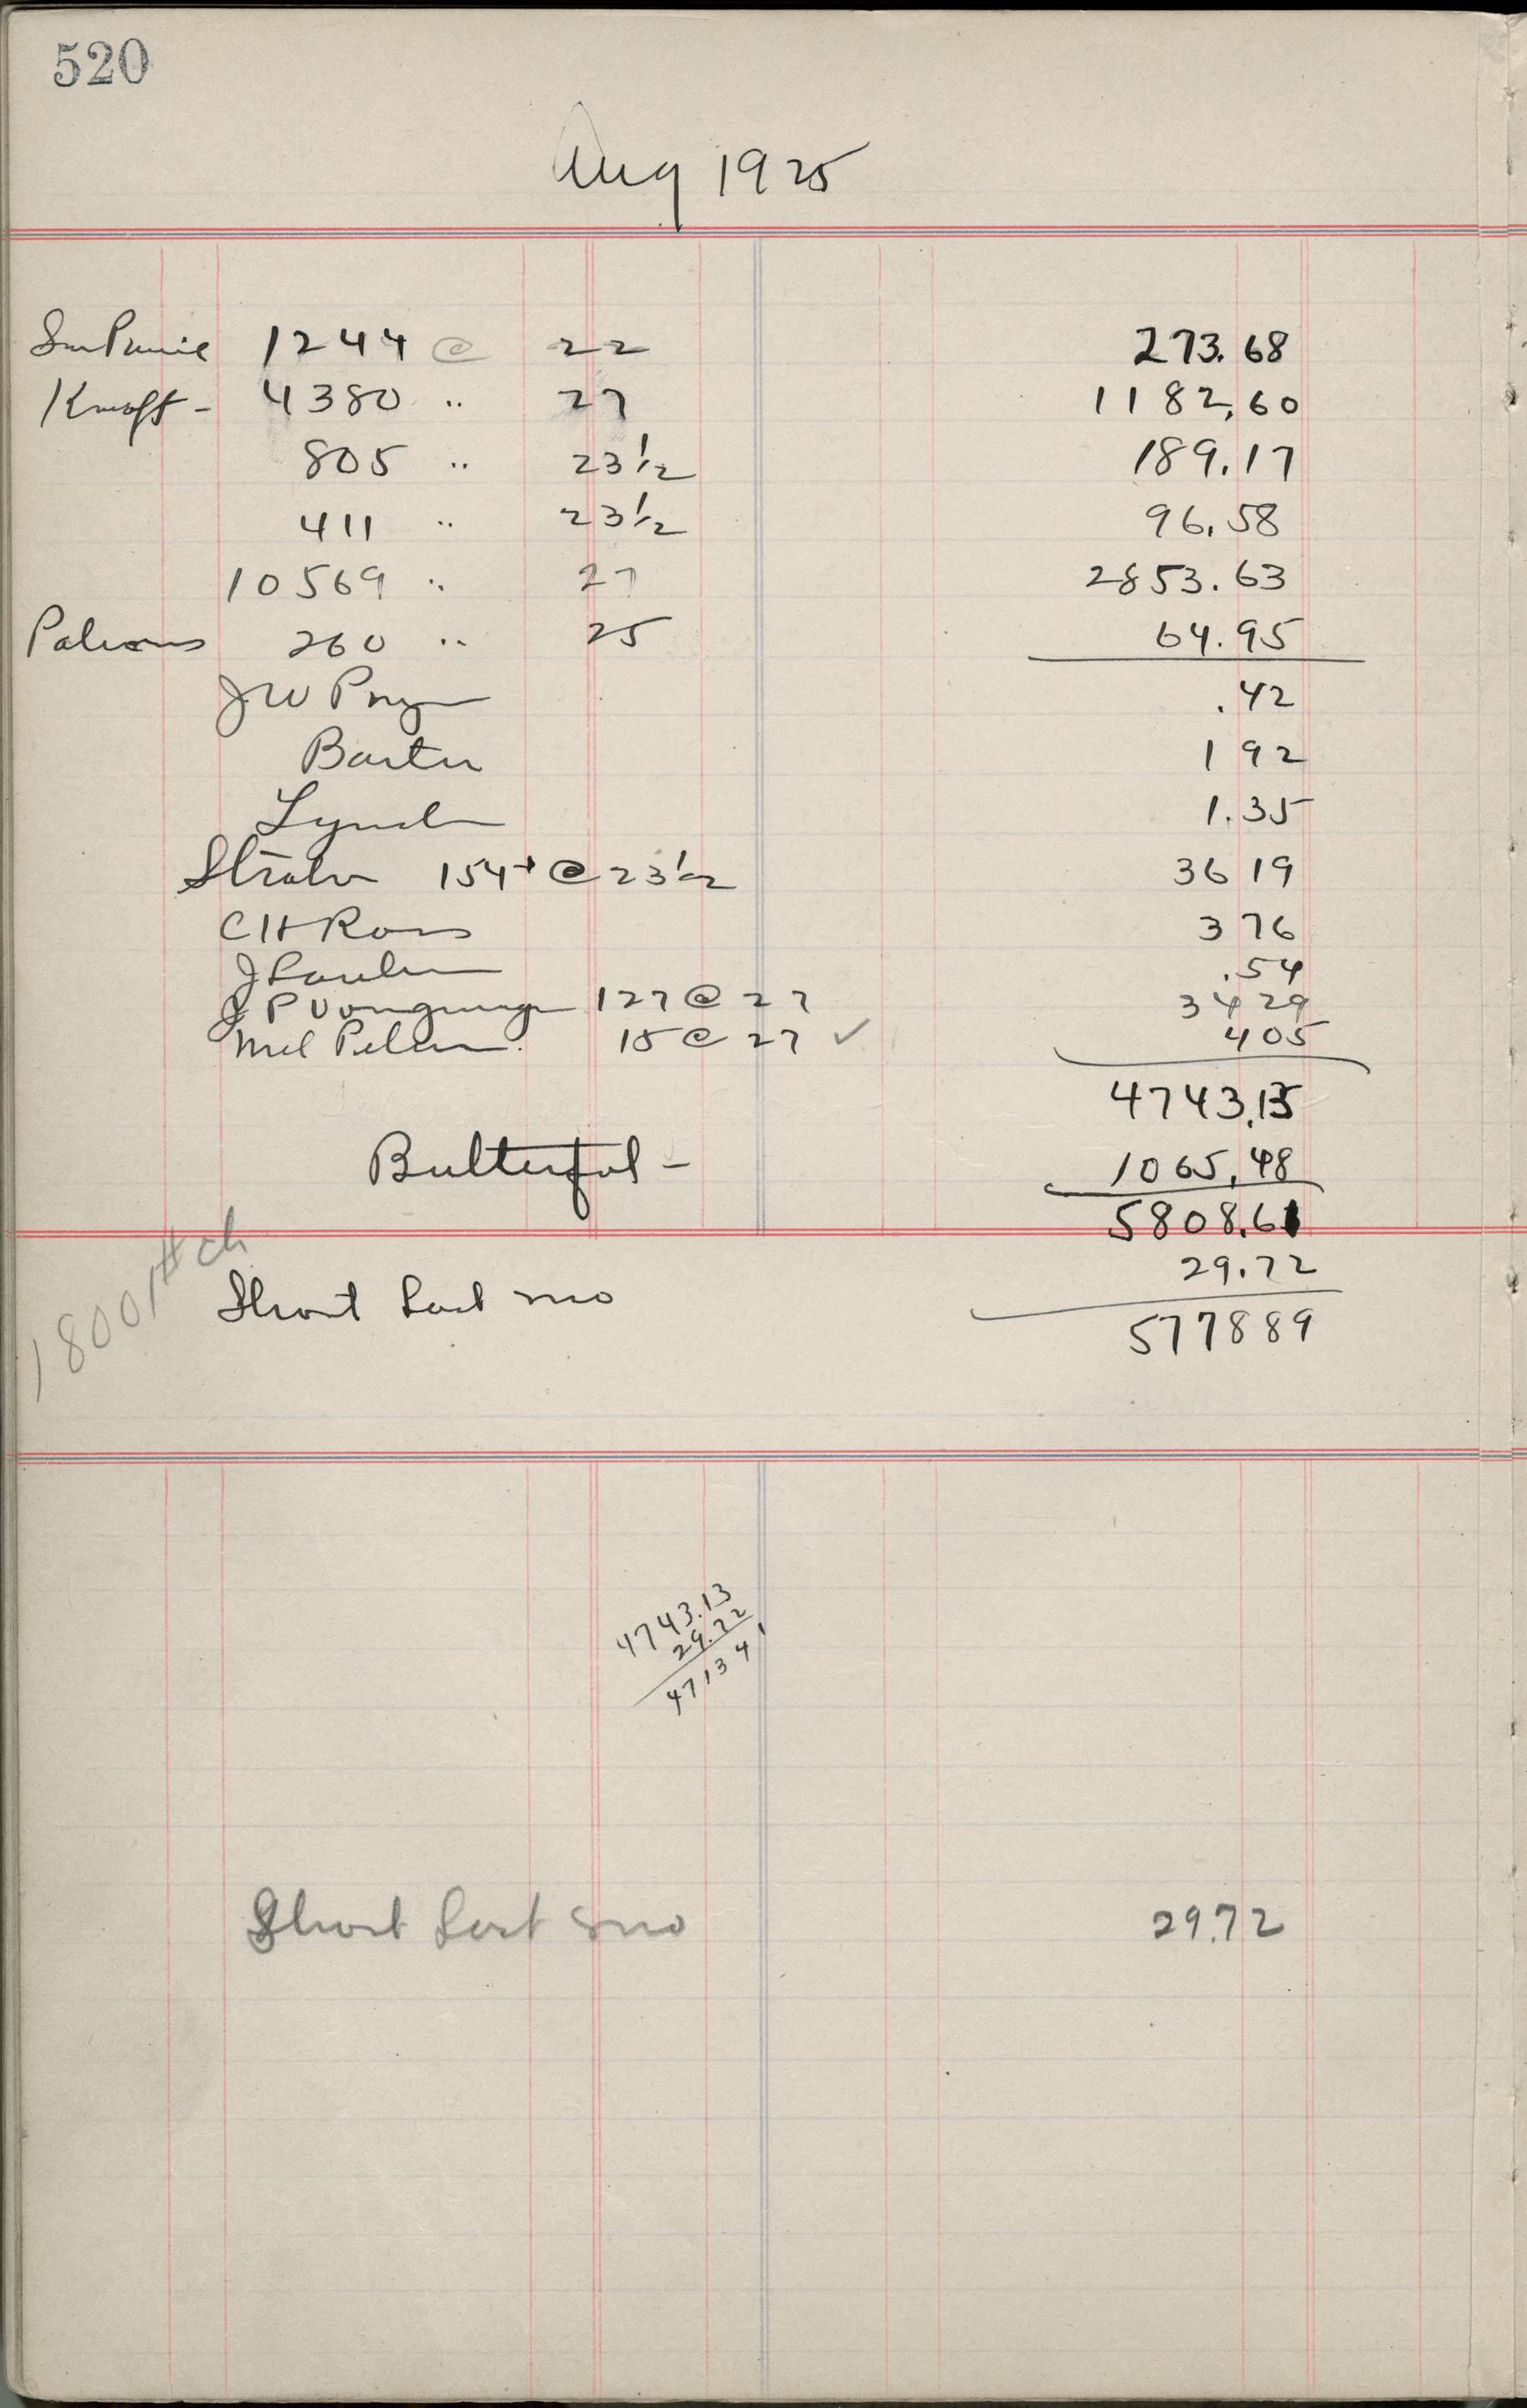 520
Aug 1925
1244 @ 22 273.68
Knoff - 4380 " 27 1182.60
805 " 23 1/2 189.17
411 " 23 1/2 96.58
10569 " 27 2853.63
Patrons 260 " 25 64.95
J W Pryn .42
Barter 1 92
Lynch 1.35
154 @ 23 1/2 36 19
C H Ross 3 76
J .54
J P 127 @ 27 34 29
Mel 15 @ 27 ✓ 4 05
4743.13
Butterfat - 1065.48
5808.61
29.72
1800 # ch
Short Last mo
5778 89
4743.13
29.72
4713 41
Short Last mo 29.72